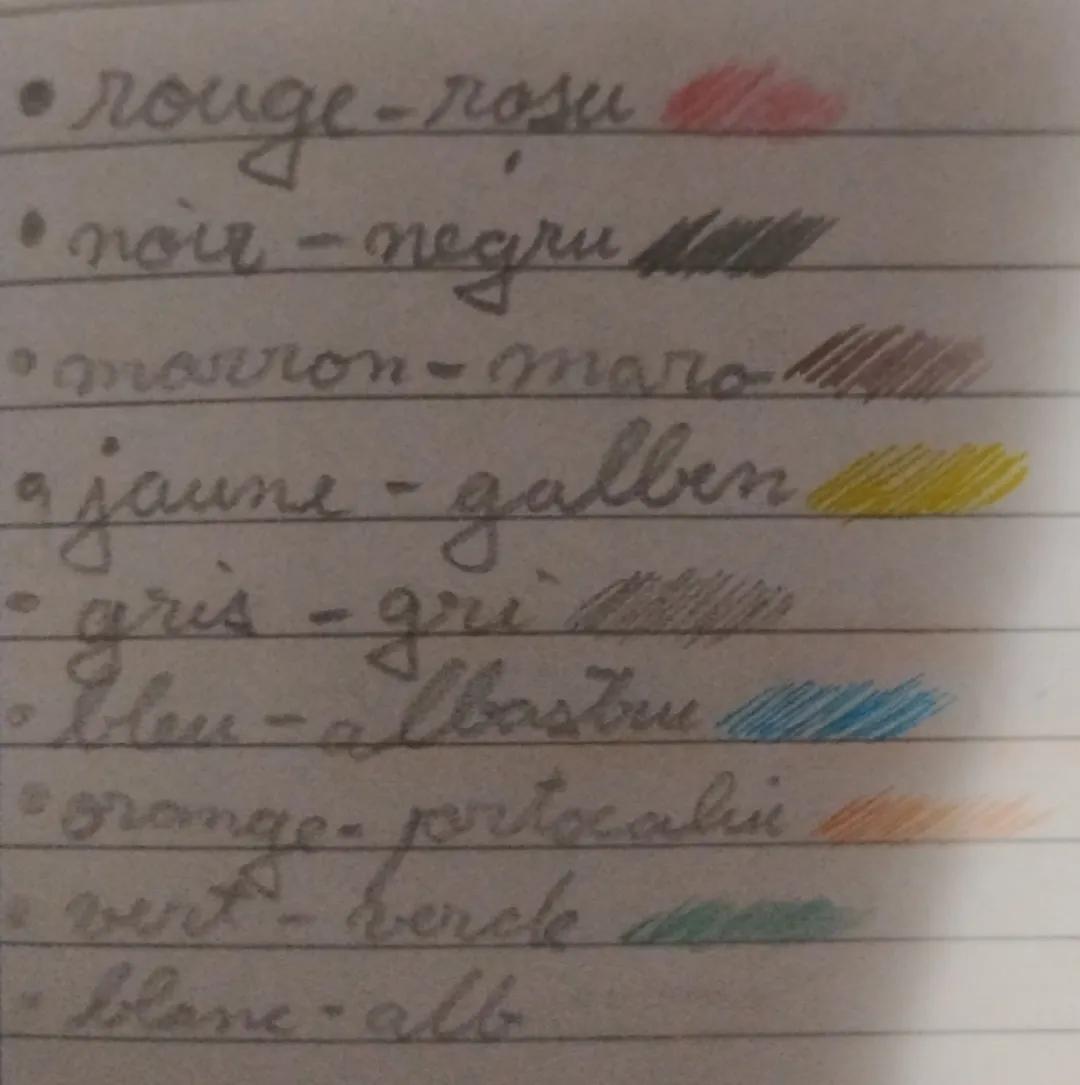 • rouge - roșu
• noir - negru
• marron - maro
• jaune - galben
• gris - gri
• bleu - albastru
• orange - portocaliu
• vert - verde
• blanc - alb